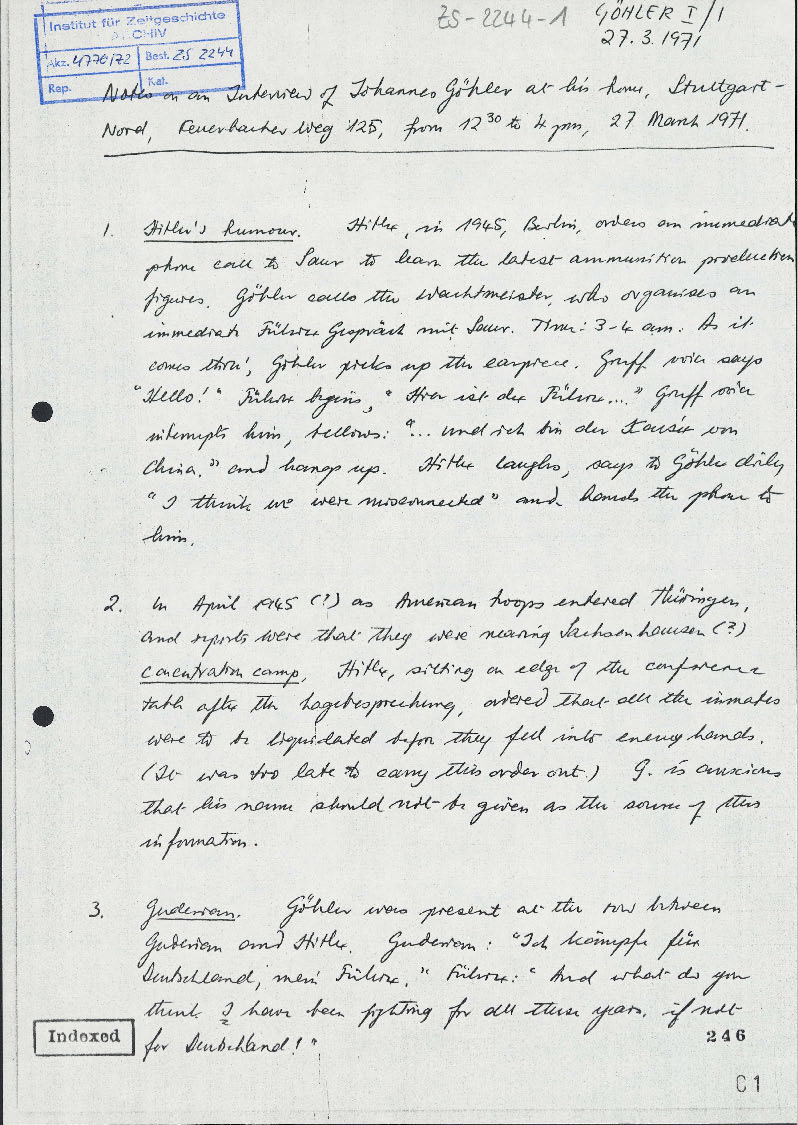 Institut für Zeitgeschichte
ARCHIV
Akz. 4776/72 Best. ZS 2244
Rep. Kat.
ZS-2244-1
GÖHLER I/1
27.3.1971
Notes on an Interview of Johannes Göhler at his home, Stuttgart-
Nord, Feuerbacher Weg 125, from 12³⁰ to 4 pm, 27 March 1971.
1. Hitler's humour. Hitler, in 1945, Berlin, orders an immediate
phone call to Saur to learn the latest ammunition production
figures. Göhler calls the Wachtmeister, who organises an
immediate Führer Gespräch mit Saur. Time: 3-4 am. As it
comes thro', Göhler picks up the earpiece. Gruff voice says
"Hello!" Führer begins, "Hier ist der Führer..." Gruff voice
interrupts him, bellows: "... und ich bin der Kaiser von
China." and hangs up. Hitler laughs, says to Göhler drily
"I think we were misconnected" and hands the phone to
him.
2. In April 1945 (?) as American troops entered Thüringen,
and reports were that they were nearing Sachsenhausen (?)
concentration camp, Hitler, sitting on edge of the conference
table after the Lagebesprechung, ordered that all the inmates
were to be liquidated before they fell into enemy hands.
(It was too late to carry this order out.) G. is anxious
that his name should not be given as the source of this
information.
3. Guderian. Göhler was present at the row between
Guderian and Hitler. Guderian: "Ich kämpfe für
Deutschland, mein Führer." Führer: "And what do you
think I have been fighting for all these years, if not
for Deutschland!"
Indexed
246
C1